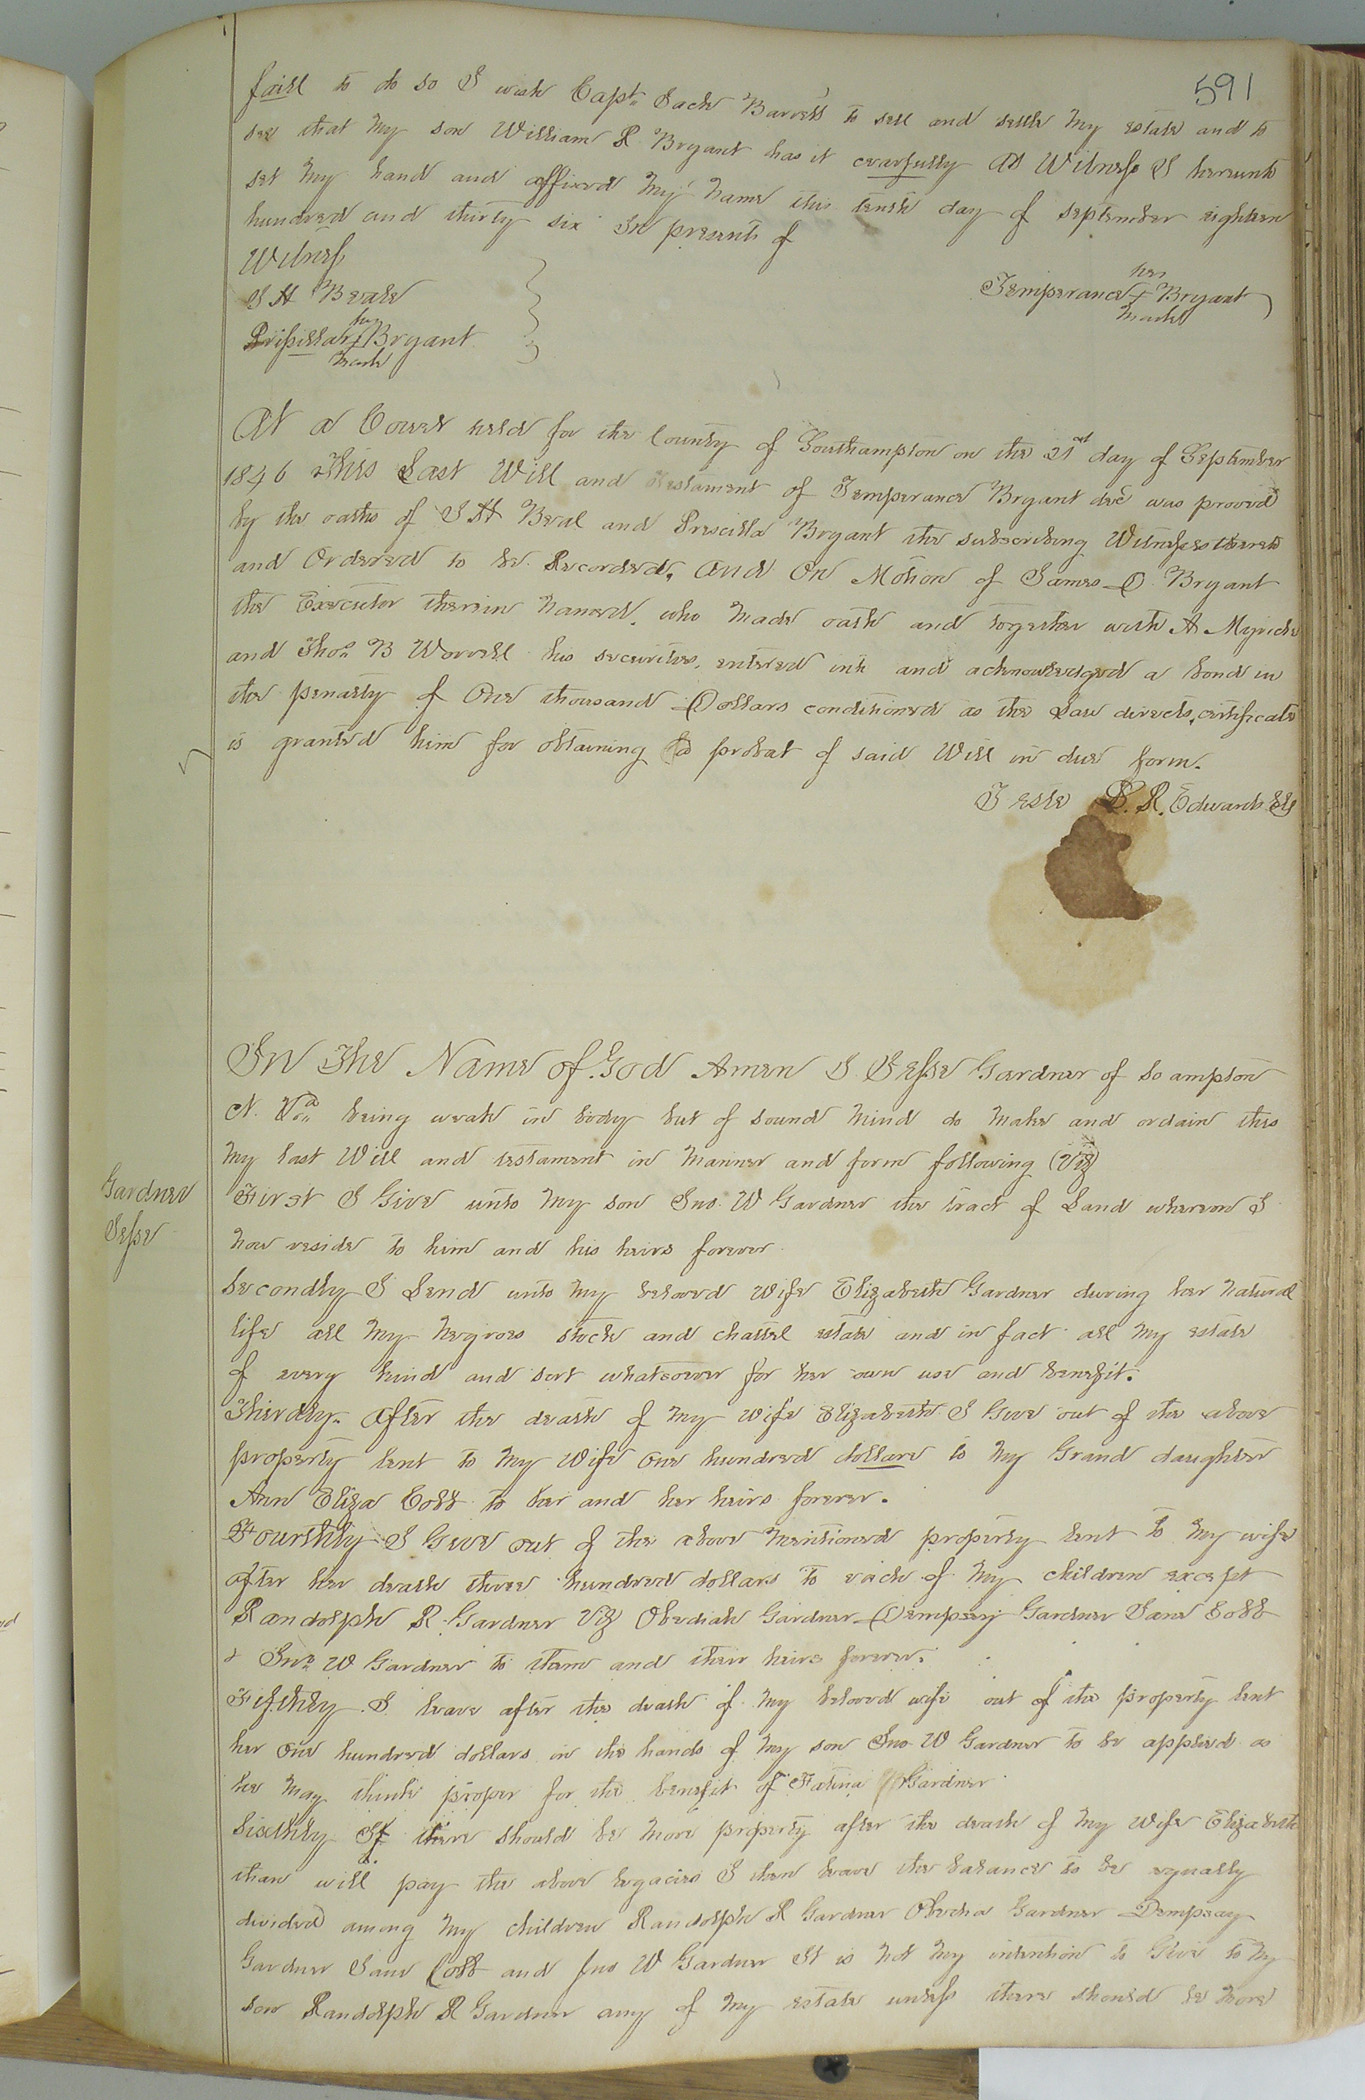 591
faill to do so I wish Capt. Jack Barrett to sell and settle my estate and to
see that my son William R Bryant has it cearfully As Witness I hereunto
set my hand and affixed my name this tenth day of september eighteen
hundred and thirty six In presents of
Witness
J H Beale
her
Temperance + Bryant
mark
her
Prissilla + Bryant
mark
At a Court held for the County of Southampton on the 21st day of September
1846 This Last Will and Testament of Temperance Bryant decd was prooved
by the oaths of J H Beal and Prescilla Bryant the subscribing Witnesses thereto
and Ordered to be Recorded. And On Motion of James D Bryant
the Executor therein named, who made oath and together with A Myrick
and Thos B Worrell his securities, entered into and acknowledged a bond in
the penalty of One thousand Dollars conditioned as the Law directs, certificate
is granted him for obtaining a probat of said Will in due form.
Teste L. R. Edwards Clk
In The Name of God Amen I Jesse Gardner of So ampton
Va. being weak in body but of sound mind do make and ordain this
my last Will and testament in manner and form following (Viz)
Gardner
Jesse
First I Give unto my son Jno. W Gardner the tract of Land whereon I
now reside to him and his heirs forever.
Secondly I Lend unto my beloved wife Elizabeth Gardner during her natural
life all my negroes stock and chattel estate and in fact all my estate
of every kind and sort whatsoever for her own use and benefit.
Thirdly. After the death of my wife Elizabeth I Give out of the above
property lent to my Wife one hundred dollars to my Grand daughter
Ann Eliza Cobb to her and her heirs forever.
Fourthly I Give out of the above mentioned property lent to my wife
after her death three hundred dollars to each of my children except
Randolph R Gardner Viz Obediah Gardner Dempsey Gardner Jane Cobb
& Jno W Gardner to them and their heirs forever.
Fifthly I leave after the death of my beloved wife out of the property lent
her one hundred dollars in the hands of my son Jno W Gardner to be applied as
he may think proper for the benefit of Gardner
Sixthly If there should be more property after the death of my Wife Elizabeth
than will pay the above legacies I then leave the balance to be equally
divided among my children Randolph R Gardner Obedia Gardner Dempsey
Gardner Jane Cobb and Jno W Gardner It is not my intention to Give to my
son Randolph R Gardner any of my estate unless there should be more